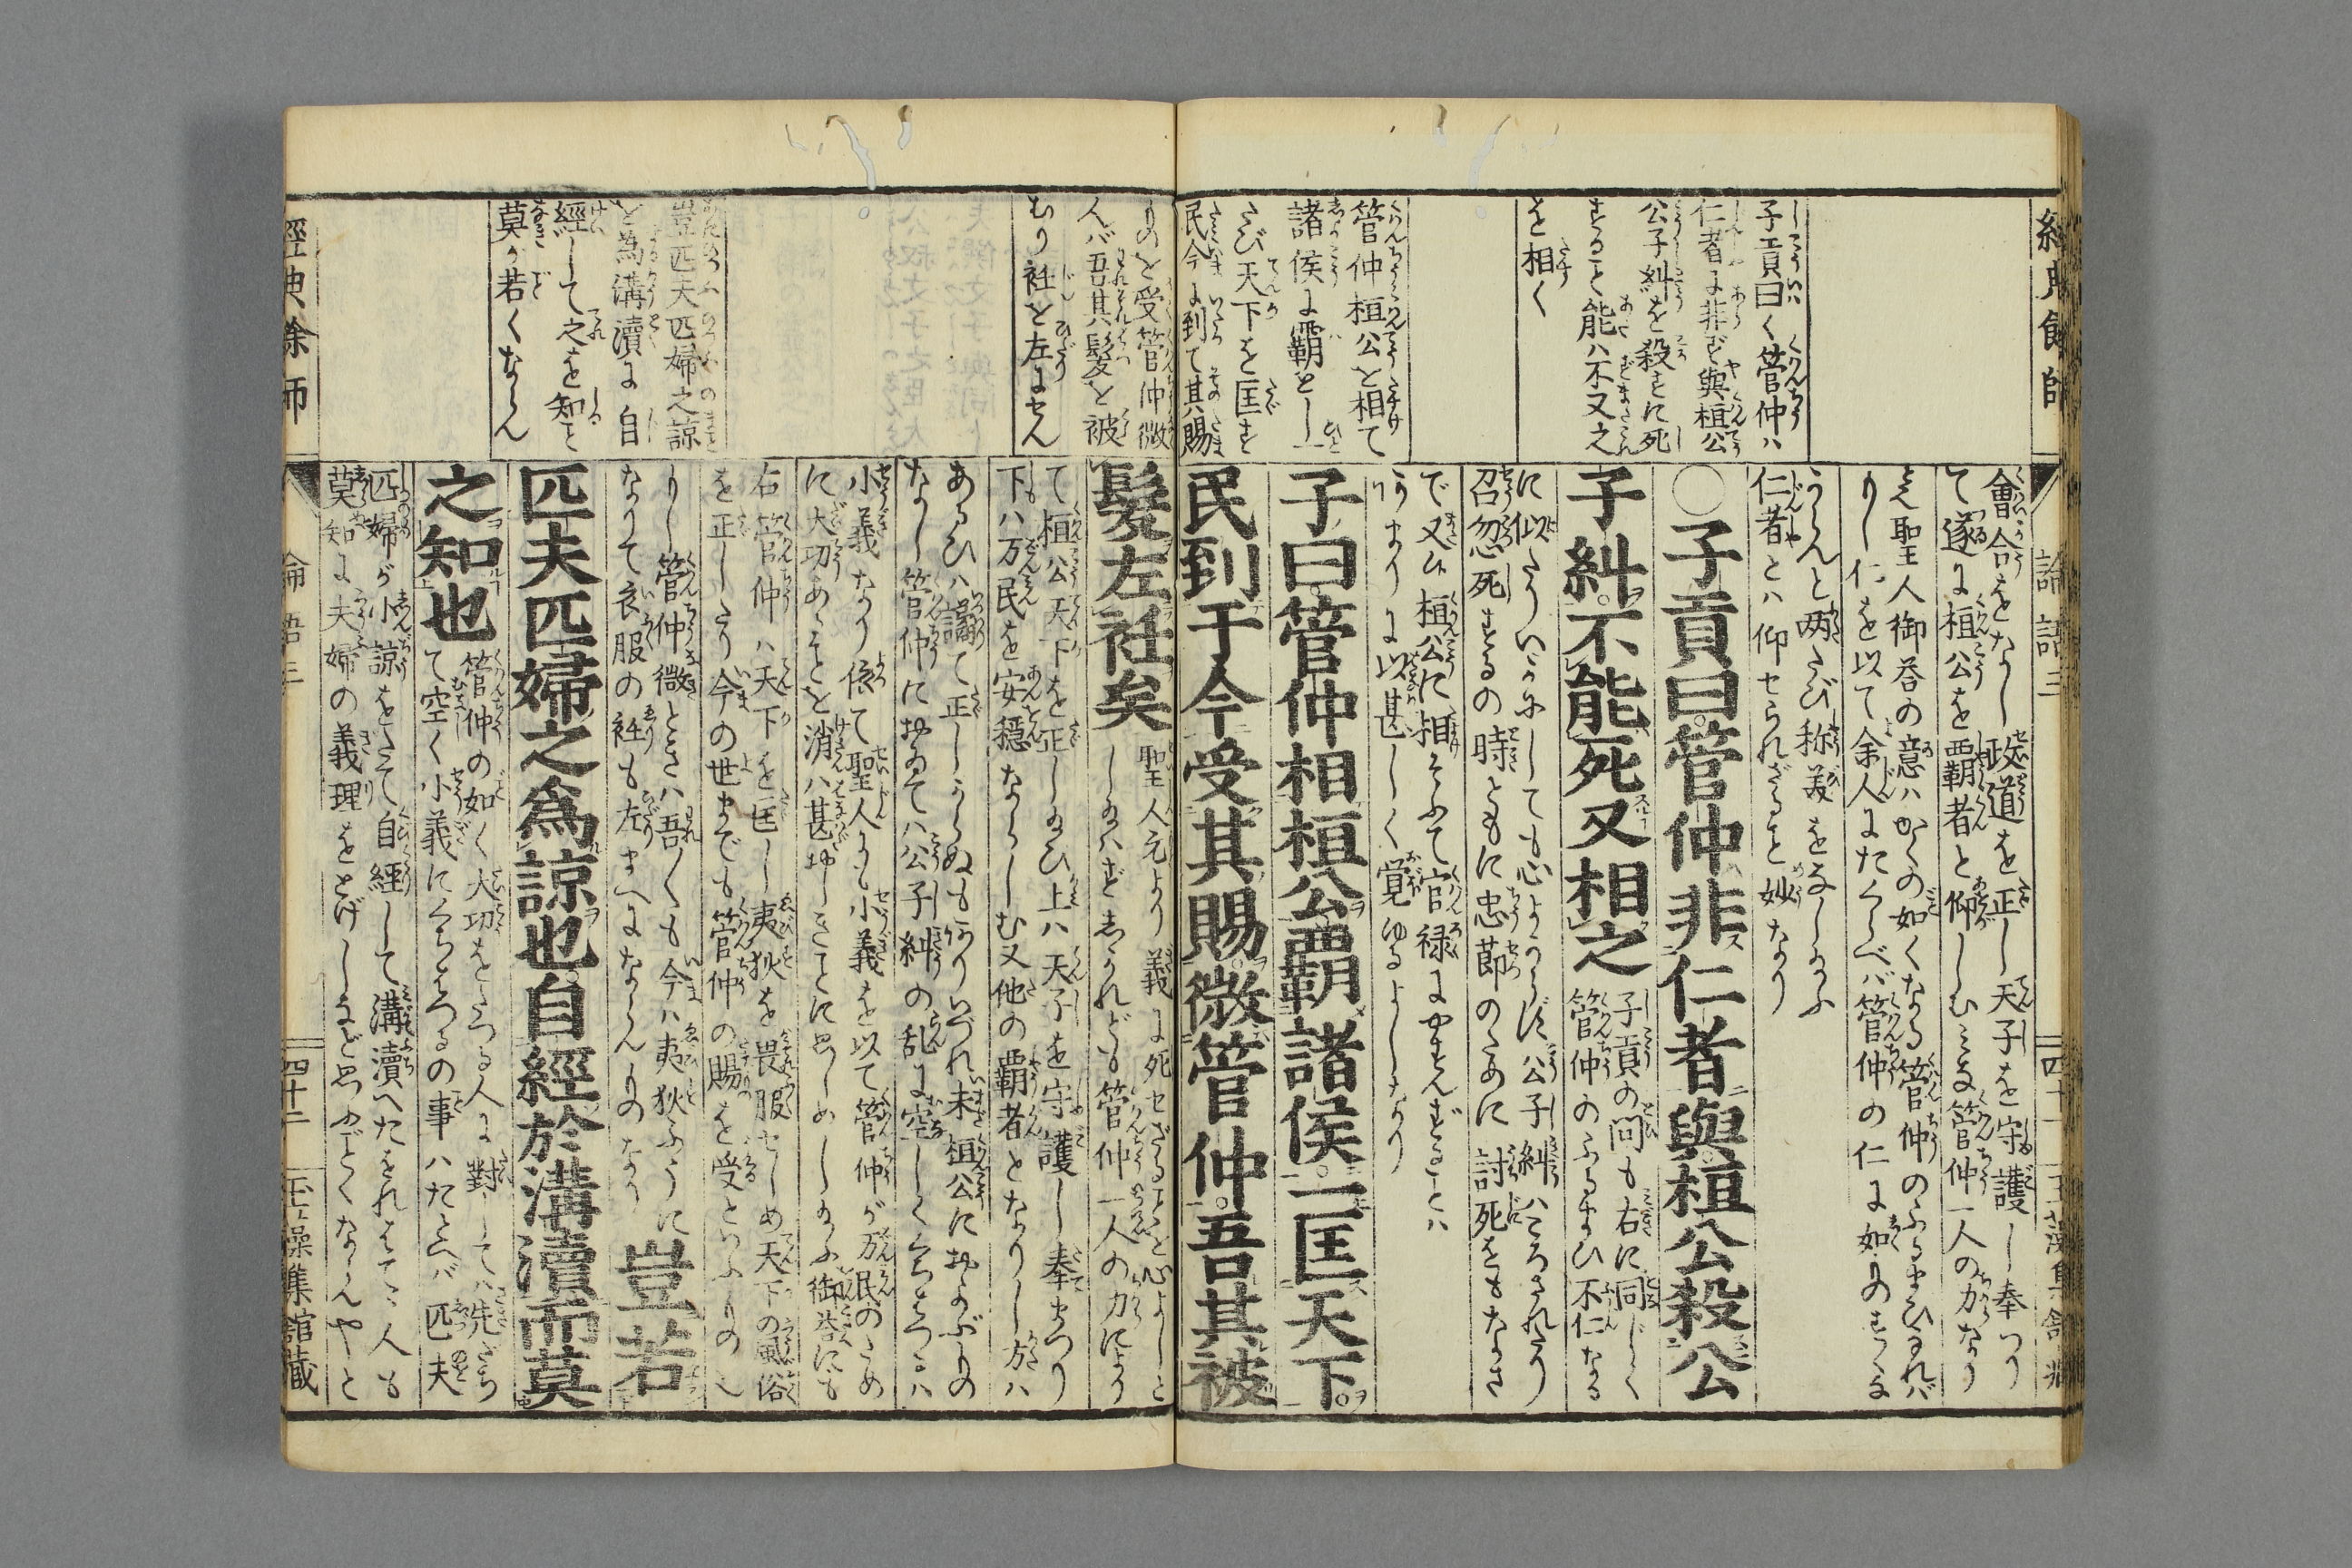 經典餘師 論語三 四十一
子貢曰く管仲ハ
仁者に非ず與桓公
公子糾を殺すに死
すること能ハ不又之
を相く
管仲桓公を相て
諸侯に覇とし一
たび天下を匡す
民今に到て其賜
會合をなし政道を正し天子を守護し奉つり
て遂に桓公を覇者と仰しむミな管仲一人の力なり
聖人御答の意ハかくの如くなる管仲のふるまひなれバ
仁を以て余人にたくらべバ管仲の仁に如ものすくな
からんと両たび称美をなし給ふ
仁者とハ仰せられざること妙なり
○子貢曰管仲非仁者與桓公殺公
子糾不能死又相之
子貢の問も右に同じく
管仲のふるまひ不仁なる
に似たりいかにしても心よからず公子糾ハころされたり
召忽死するの時ともに忠節のために討死をもなさ
で又桓公に相そふて官禄にやすんずることハ
あまりに以甚しく覚ゆるよしなり
子曰管仲相桓公覇諸侯一匡天下
民到于今受其賜微管仲吾其被
ものを受管仲微
んバ吾其髮を被
むり衽を左にせん
豈匹夫匹婦之諒
を為溝瀆に自
經して之を知こと
莫が若くならん
髮左衽矣
聖人元より義に死せざることを心よしと
し給ハずしかれども管仲一人の力により
て桓公天下を正し給ひ上ハ天子を守護し奉まつり
下ハ万民を安穏ならしむ又他の覇者となりし方ハ
あるひハ譎て正しからぬもありいづれ未桓公におよぶもの
なし管仲においてハ公子糾の乱に空しくくちはつるハ
小義なり依て聖人も小義を以て管仲が万民のため
に大功あることを消ハ甚おしきことに思しめし給ふ御答にも
右管仲ハ天下を匡し夷狄を畏服せしめ天下の風俗
を正したり今の世までも管仲の賜を受といふもの也
もし管仲微ときハ吾々も今ハ夷狄ふうに
なりて衣服の衽も左まへにならんものなり
豈若
匹夫匹婦之爲諒也自經於溝瀆而莫
之知也
管仲の如く大功をたつる人に對してハ先だち
て空く小義にくちはつるの事ハたとへバ匹夫
匹婦が小諒をたて自經して溝瀆へたをれはて人も
莫知に夫婦の義理をとげしなど思ふごとくならんやと
經典餘師 論語三 四十二 玉藻集舘藏